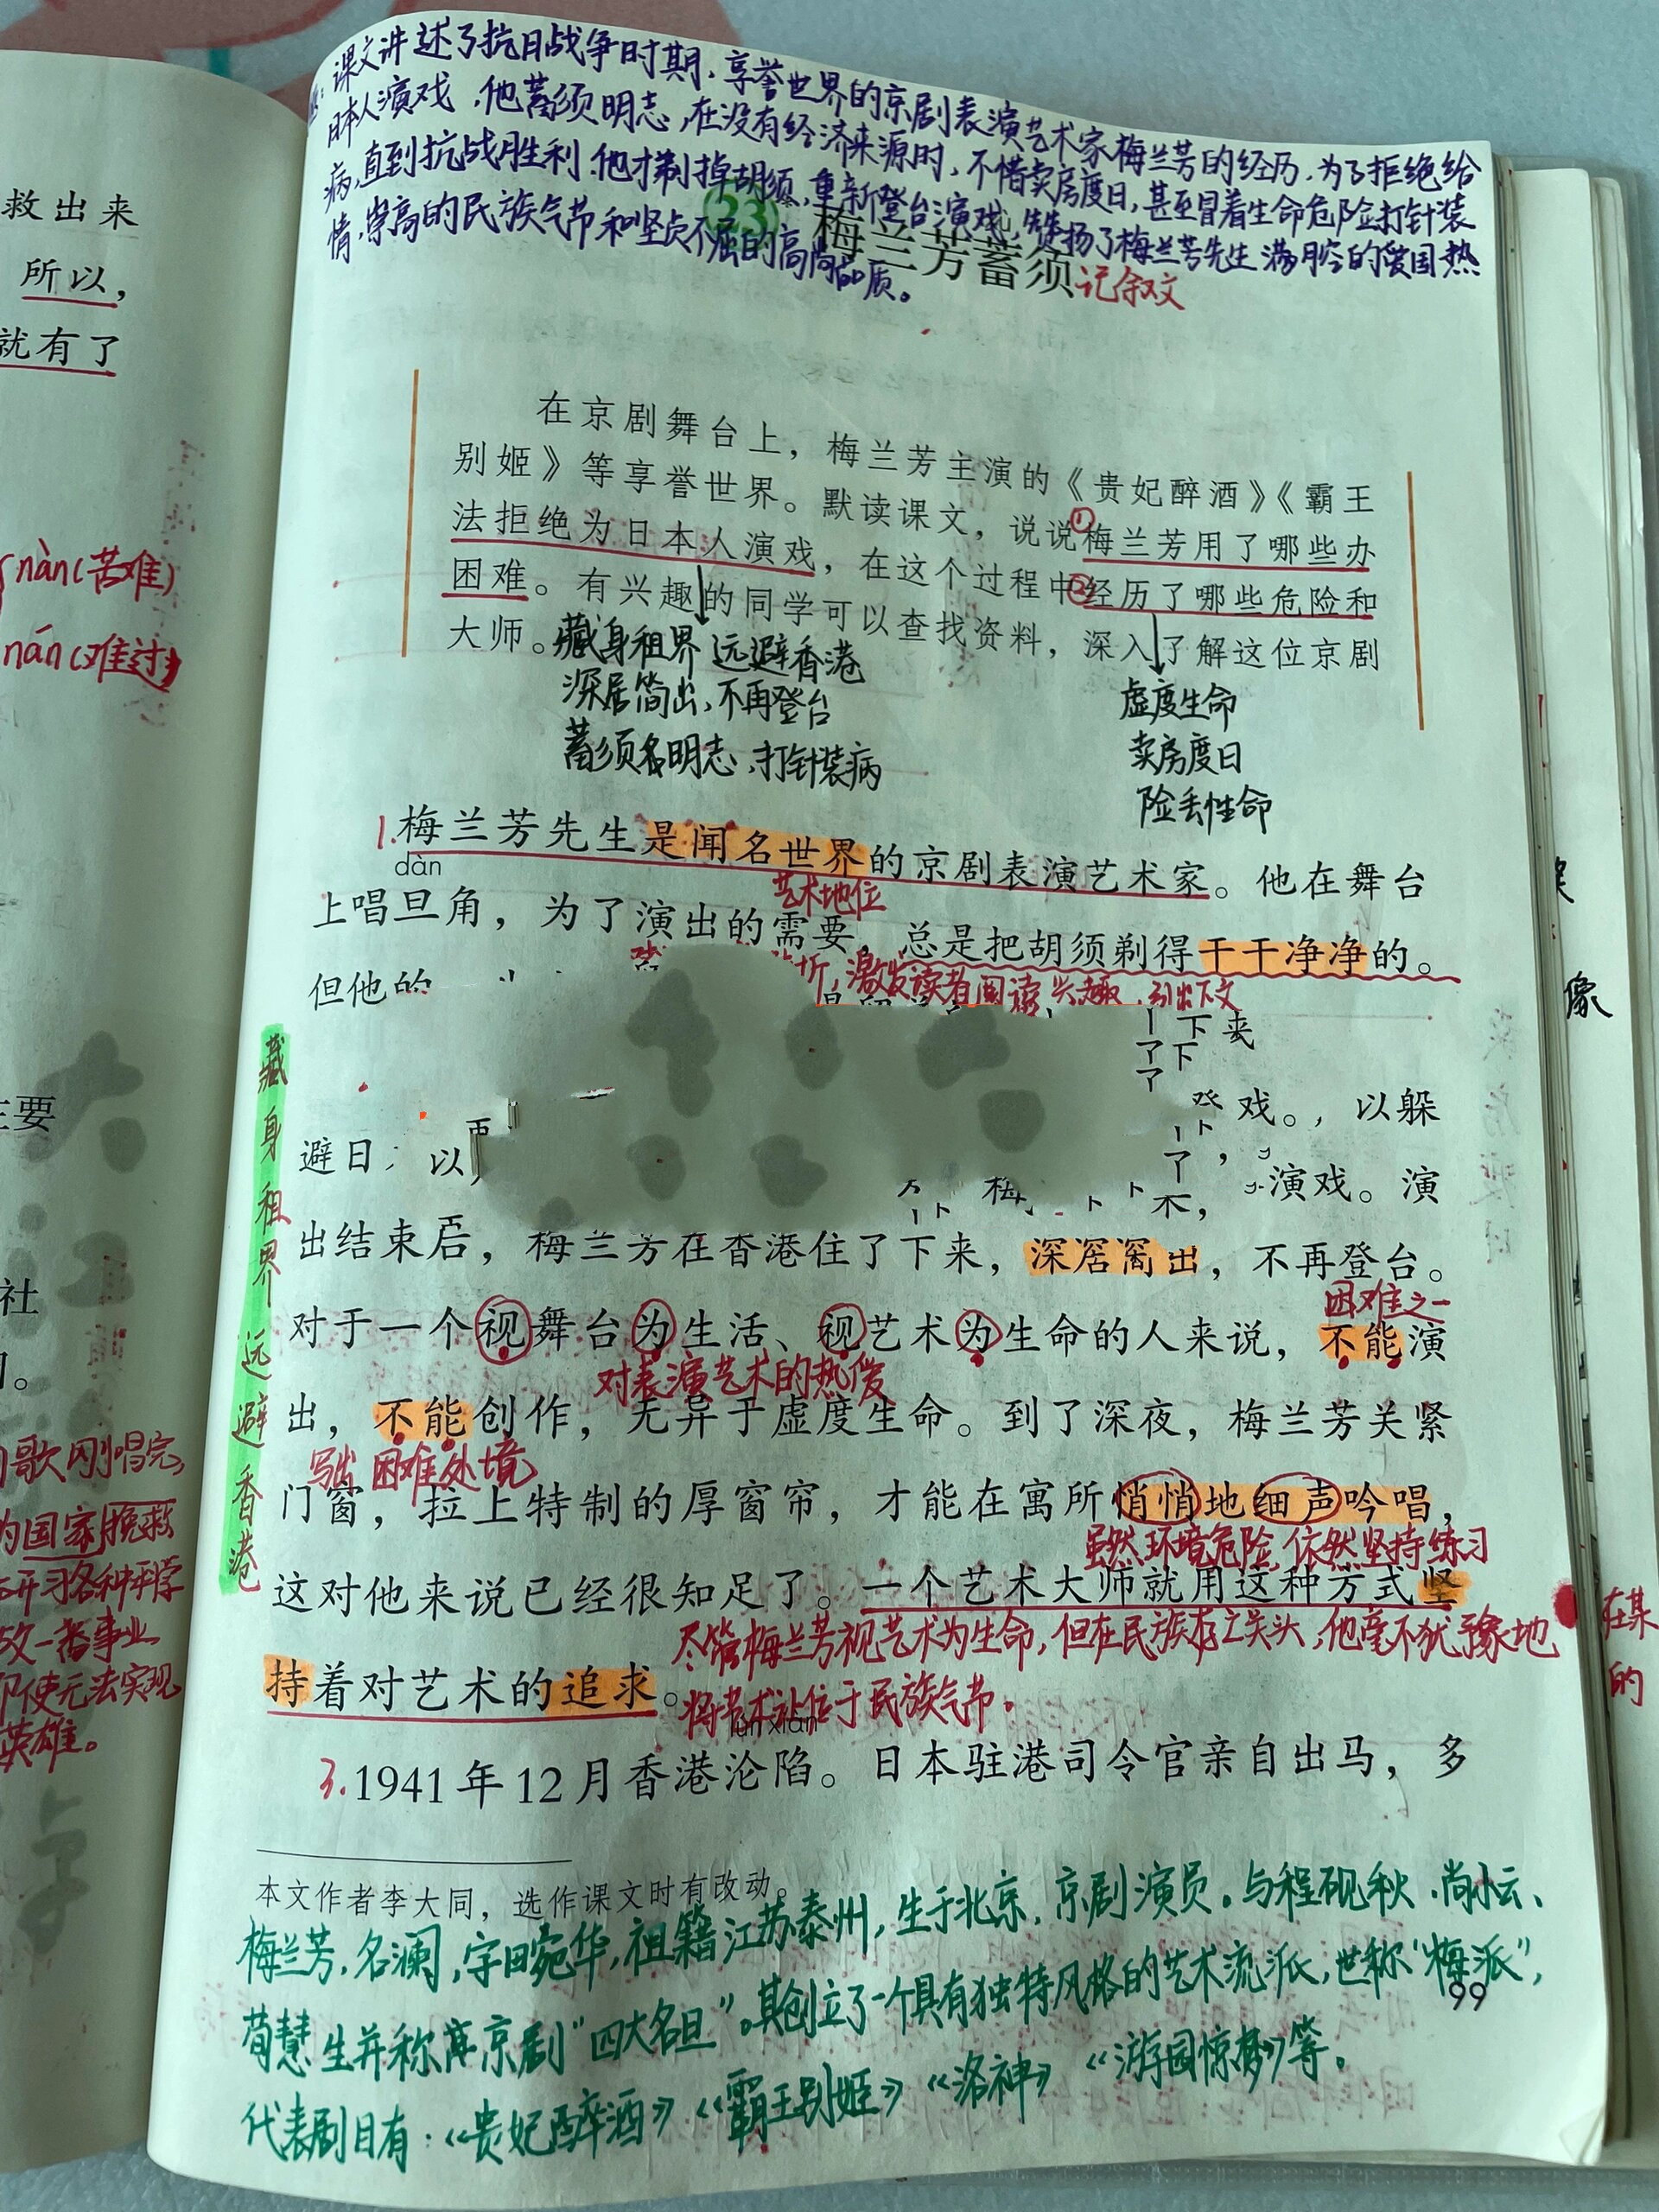 课文讲述了抗日战争时期，享誉世界的京剧表演艺术家梅兰芳的经历，为了拒绝给
日本人演戏，他蓄须明志，在没有经济来源时，不惜卖房度日，甚至冒着生命危险打针装
病，直到抗战胜利，他才剃掉胡须，重新登台演戏，赞扬了梅兰芳先生满腔的爱国热
情，崇高的民族气节和坚贞不屈的高尚品质。
23 梅兰芳蓄须 记叙文
在京剧舞台上，梅兰芳主演的《贵妃醉酒》《霸王
别姬》等享誉世界。默读课文，说说①梅兰芳用了哪些办
法拒绝为日本人演戏，在这个过程中②经历了哪些危险和
困难。有兴趣的同学可以查找资料，深入了解这位京剧
大师。
藏身租界 远避香港
深居简出，不再登台
蓄须明志，打针装病
虚度生命
卖房度日
险丢性命
1.梅兰芳先生是闻名世界的京剧表演艺术家。他在舞台
dàn
艺术地位
上唱旦角，为了演出的需要，总是把胡须剃得干干净净的。
激发读者阅读兴趣，引出下文
但他的
下来
戏。，以躲
避日 以
演戏。演
出结束后，梅兰芳在香港住了下来，深居简出，不再登台。
困难之一
对于一个视舞台为生活、视艺术为生命的人来说，不能演
对表演艺术的热爱
出，不能创作，无异于虚度生命。到了深夜，梅兰芳关紧
写出困难处境
门窗，拉上特制的厚窗帘，才能在寓所悄悄地细声吟唱，
虽然环境危险，依然坚持练习
这对他来说已经很知足了。一个艺术大师就用这种方式坚
尽管梅兰芳视艺术为生命，但在民族存亡关头，他毫不犹豫地
持着对艺术的追求。
将艺术让位于民族气节。
lún xiàn
3.1941年12月香港沦陷。日本驻港司令官亲自出马，多
藏身租界 远避香港
本文作者李大同，选作课文时有改动。
梅兰芳，名澜，字畹华，祖籍江苏泰州，生于北京，京剧演员。与程砚秋、尚小云、
荀慧生并称为京剧“四大名旦”。其创立了一个具有独特风格的艺术流派，世称“梅派”，
代表剧目有：《贵妃醉酒》《霸王别姬》《洛神》《游园惊梦》等。
99
救出来
所以，
就有了
nàn（苦难）
nán（难过）
主要
社
歌刚唱完，
国家挽救
一番事业
即使无法实现
英雄。
像
在某
的